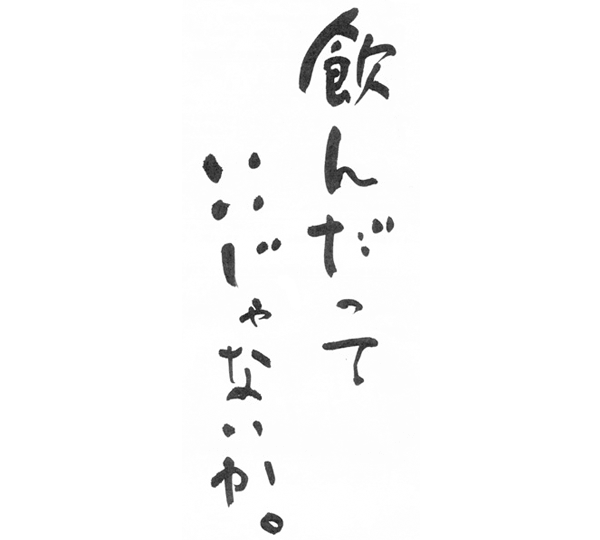 飲んだって
いいじゃないか。